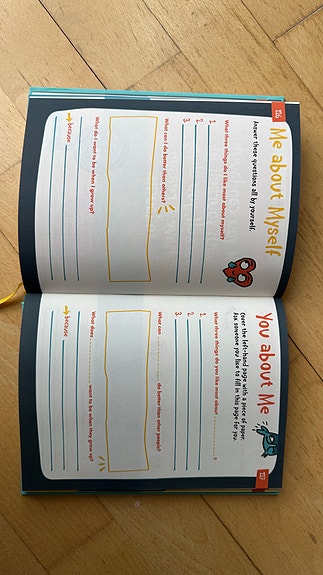 126
Me about Myself
Answer these questions all by yourself.
What three things do I like most about myself?
1.
2.
3.
What can I do better than others?
What do I want to be when I grow up?
because
You about Me
Cover the left-hand page with a piece of paper.
Ask someone you like to fill in this page for you.
What three things do you like most about ........?
1.
2.
3.
What can ........ do better than other people?
What does ........ want to be when they grow up?
because
127